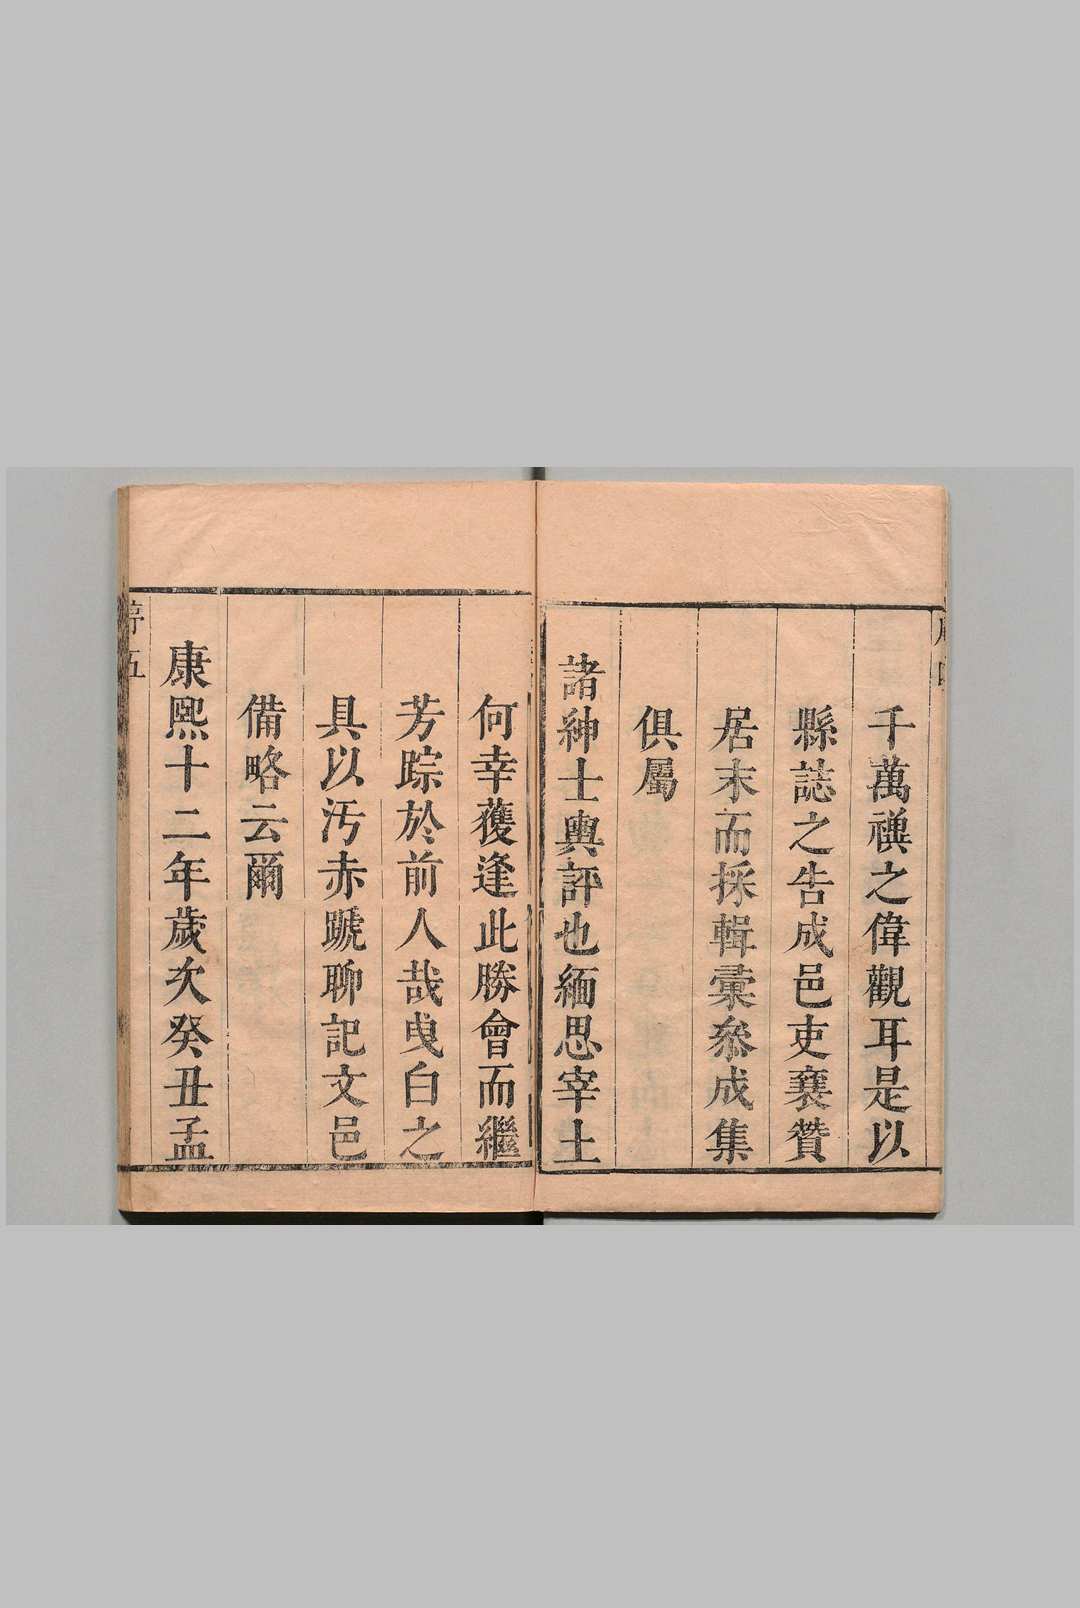 千萬禩之偉觀耳是以
縣誌之告成邑吏襄贊
居末而採輯彙叅成集
俱屬
諸紳士輿評也緬思宰土
何幸獲逢此勝會而繼
芳踪於前人哉曳白之
具以汚赤蹏聊記文邑
備略云爾
康熙十二年歲次癸丑孟
序五